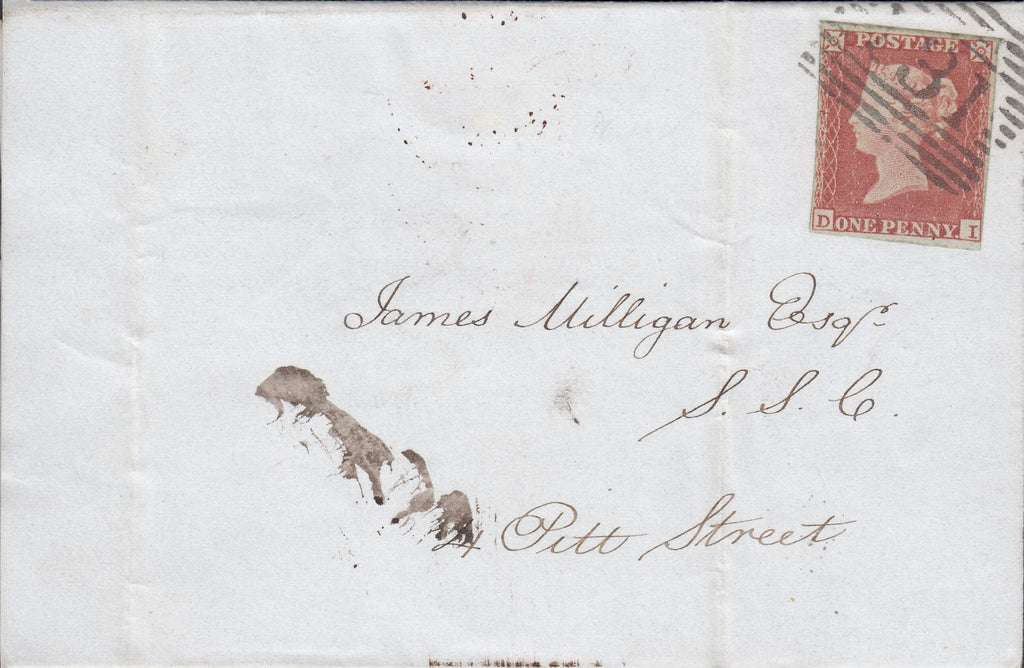 POSTAGE
131
D ONE PENNY. I
James Milligan Esqr.
S. S. C.
24 Pitt Street